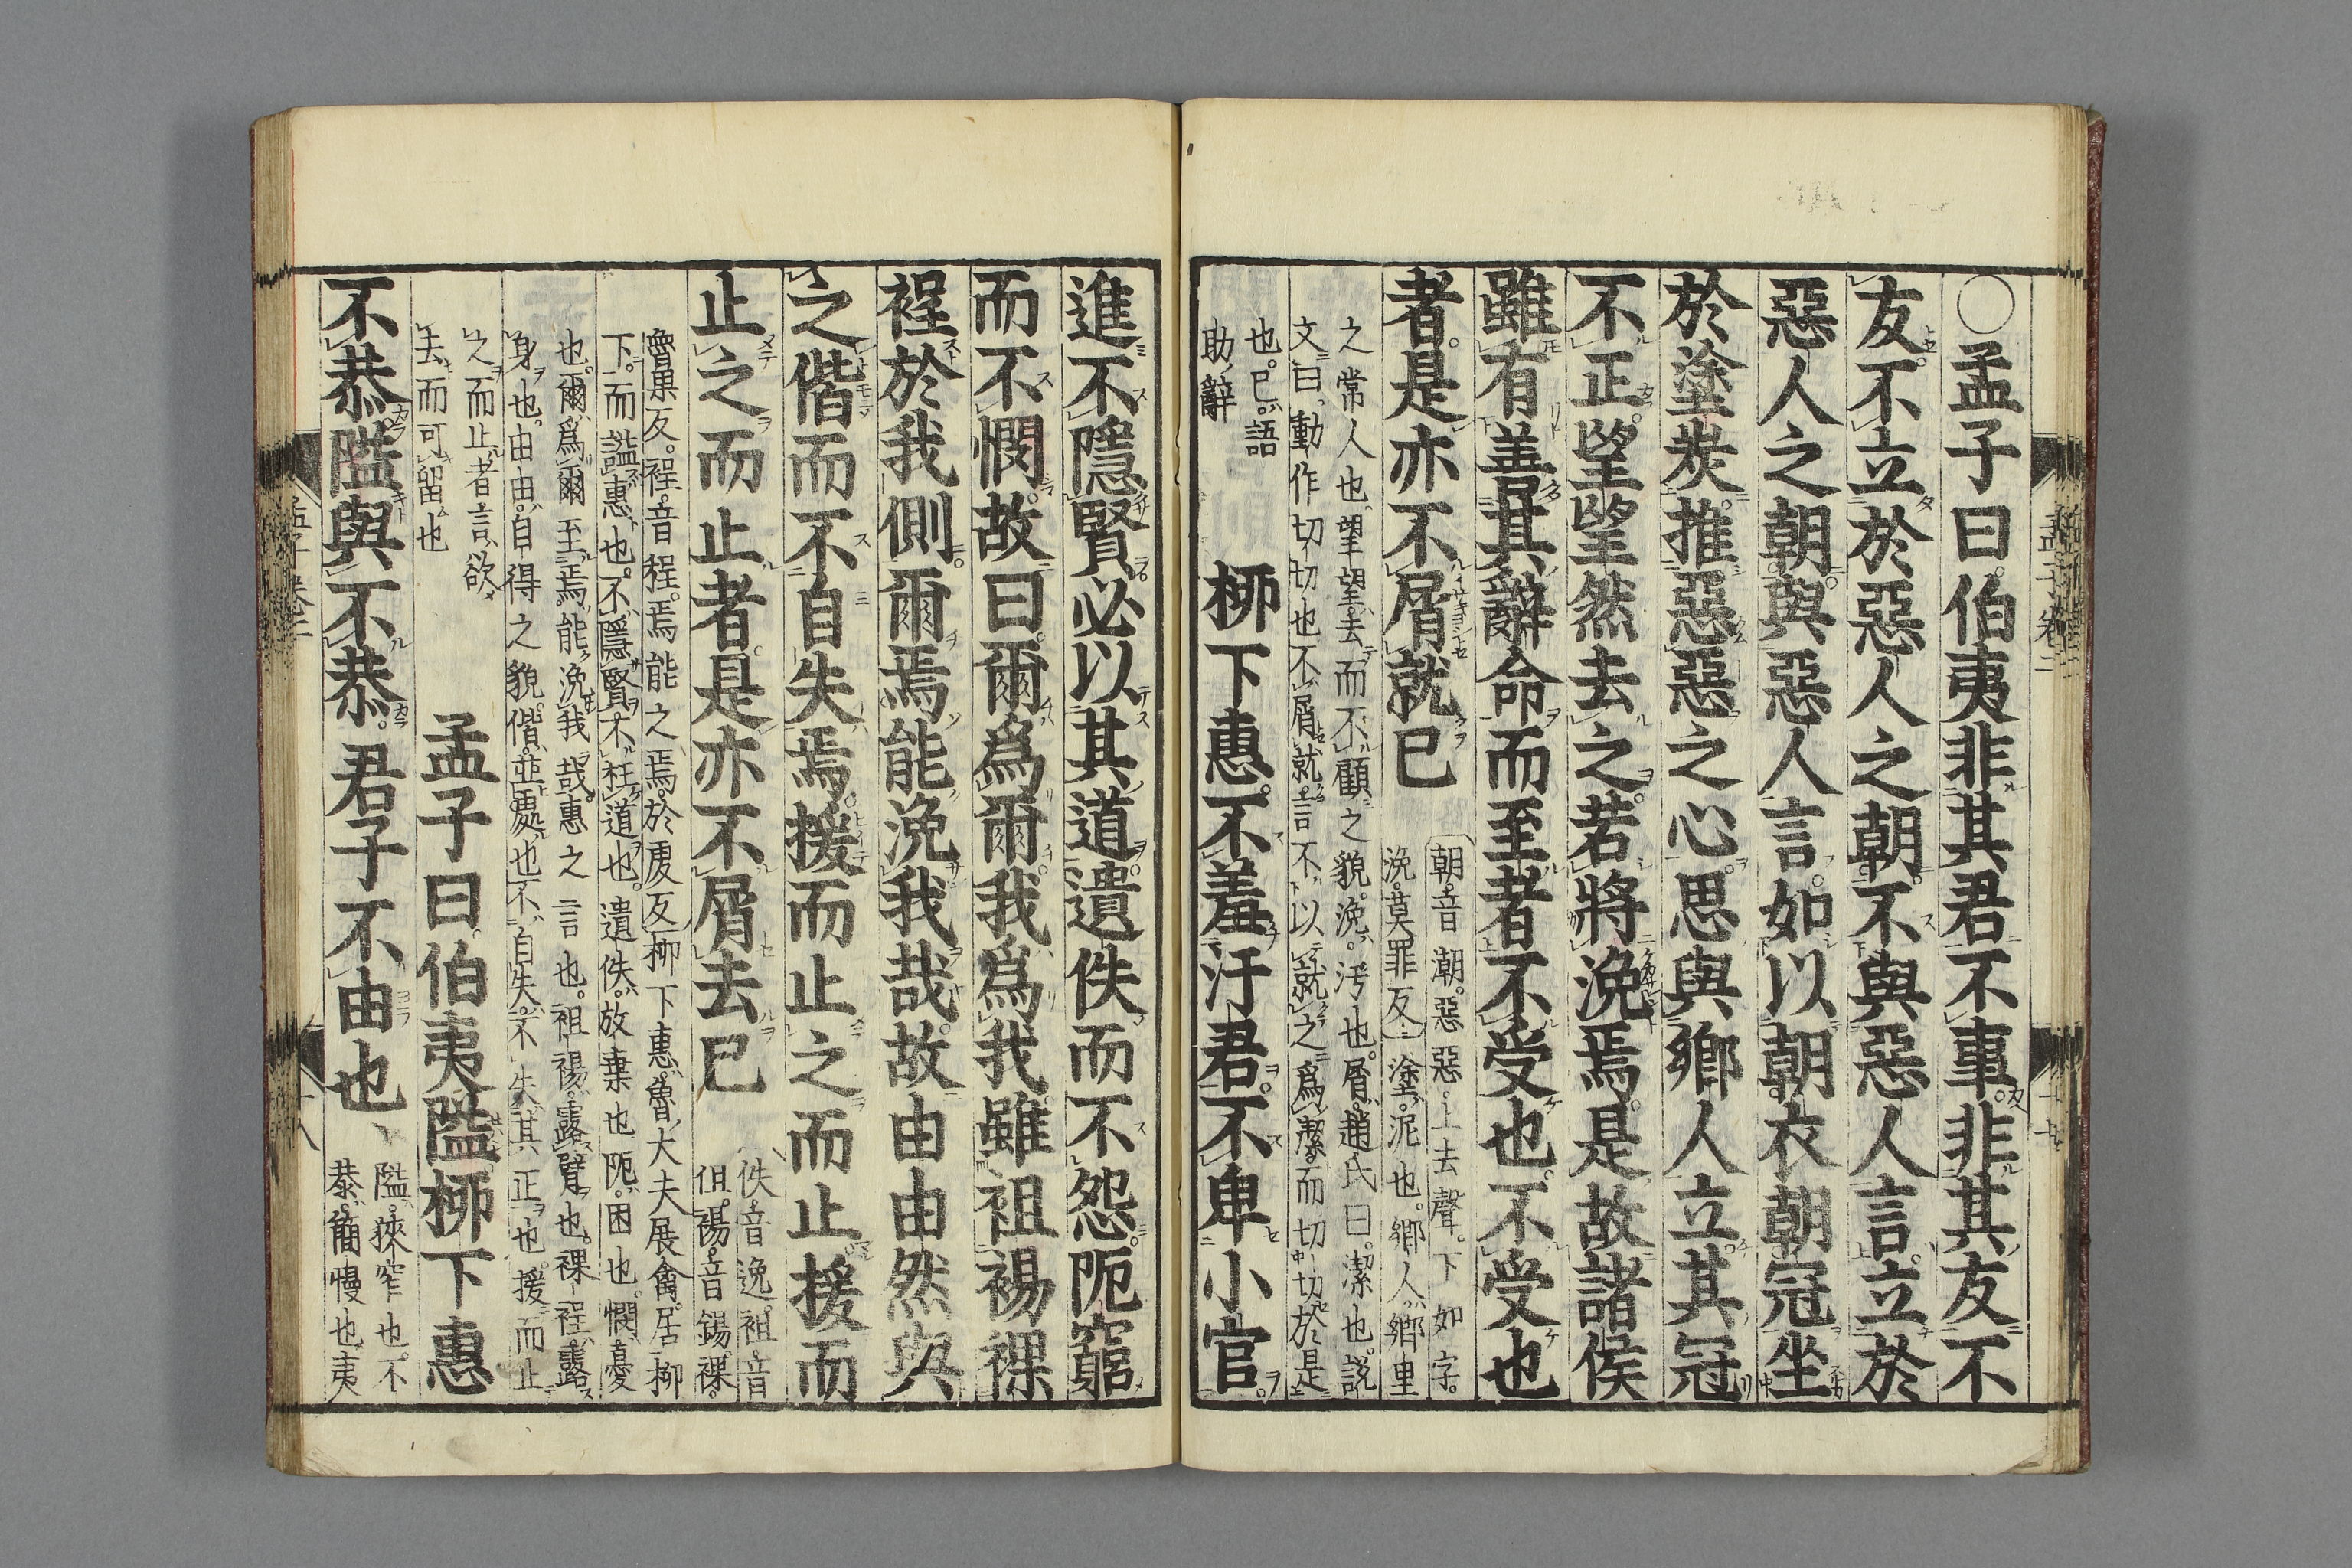 ○孟子曰伯夷非其君不事非其友不
友不立於惡人之朝不與惡人言立於
惡人之朝與惡人言如以朝衣朝冠坐
於塗炭推惡惡之心思與鄉人立其冠
不正望望然去之若將浼焉是故諸侯
雖有善其辭命而至者不受也不受也
者是亦不屑就已
朝音潮惡惡上去聲下如字
浼莫罪反塗泥也鄉人鄉里
之常人也望望去而不顧之貌浼汚也屑趙氏曰潔也說
文曰動作切切也不屑就言不以就之爲潔而切切於是
也已語
助辭
柳下惠不羞汙君不卑小官
進不隱賢必以其道遺佚而不怨阨窮
而不憫故曰爾爲爾我爲我雖袒裼裸
裎於我側爾焉能浼我哉故由由然與
之偕而不自失焉援而止之而止援而
止之而止者是亦不屑去已
佚音逸袒音
但裼音錫裸
魯果反裎音程焉能之焉於虔反柳下惠魯大夫展禽居柳
下而謚惠也不隱賢不枉道也遺佚放棄也阨困也憫憂
也爾爲爾至焉能浼我哉惠之言也袒裼露臂也裸裎露
身也由由自得之貌偕並處也不自失不失其正也援而止
之而止者言欲
去而可留也
孟子曰伯夷隘柳下惠
不恭隘與不恭君子不由也
隘狹窄也不
恭簡慢也夷